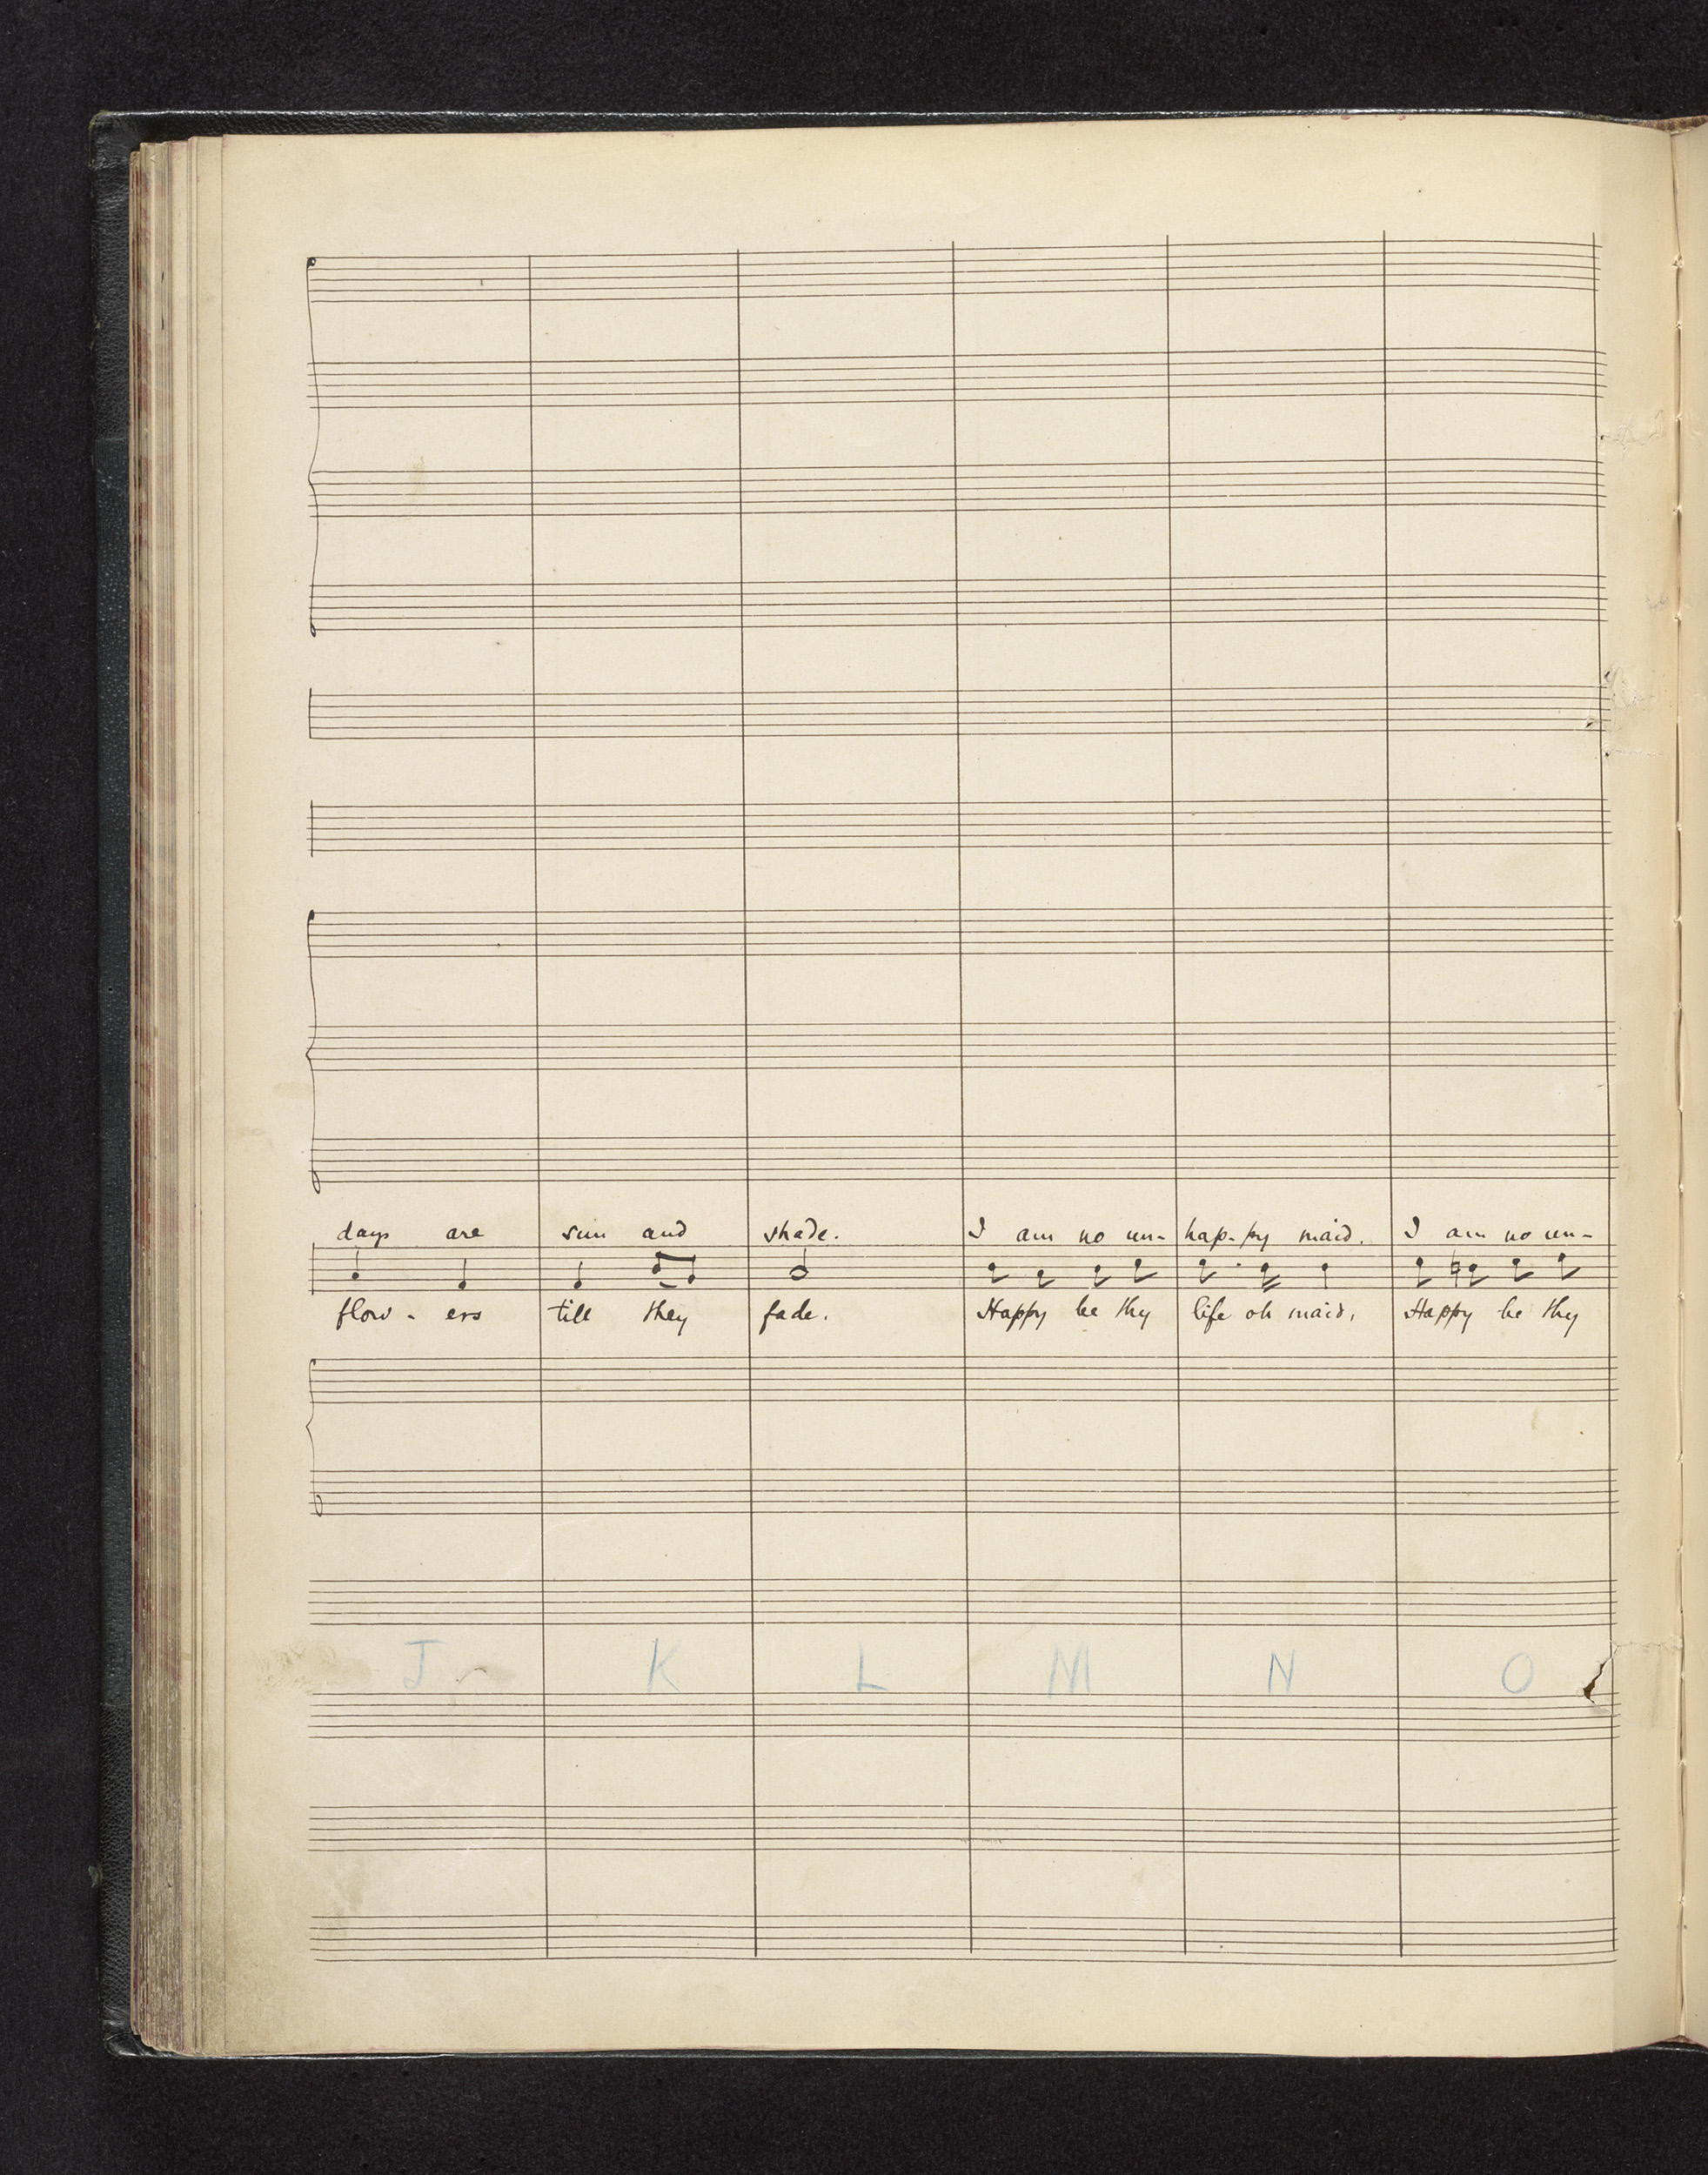 days are sun and shade. I am no un- hap-py maid. I am no un-
flow - ers till they fade. Happy be thy life oh maid, Happy be thy
J K L M N O